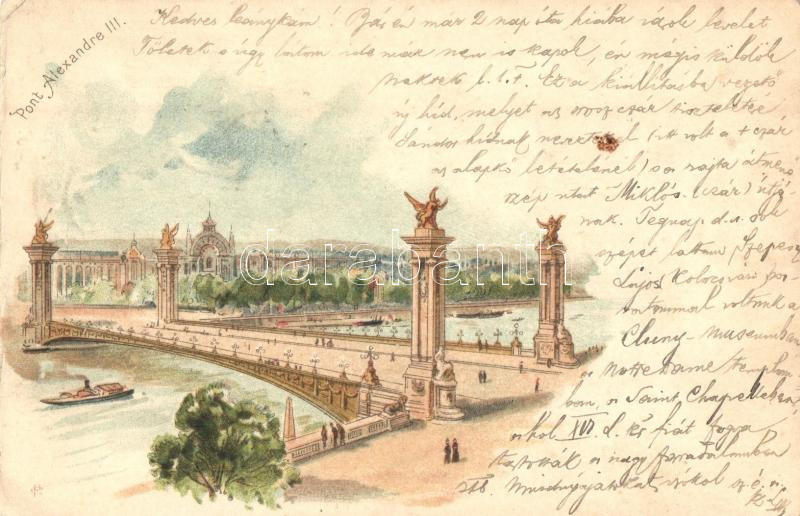 Pont Alexandre III.
Kedves leánykám! Bár én már 2 nap óta hiába várok levelet
Tőletek s úgy látom ide már nem is kapok, én mégis küldök
nektek l. l. t. Ez a kiállításba vezető
új híd, melyet az orosz czár tiszteletére
Sándor hídnak neveztek el (itt volt a + czár
az alapkő letételénél) s a rajta átmenő
szép utat Miklós (czár) útjá-
nak. Tegnap d. u. sok
szépet láttam Szepesy
Lajos kolozsvári
voltunk a
Cluny-museumban
a Notre Dame templom-
ban, a Saint Chapelleben
ahol IVI. L. kis fiát fogva
tartották s nagy fáradalmunk
stb. csókol sz. é. a.
darabanth